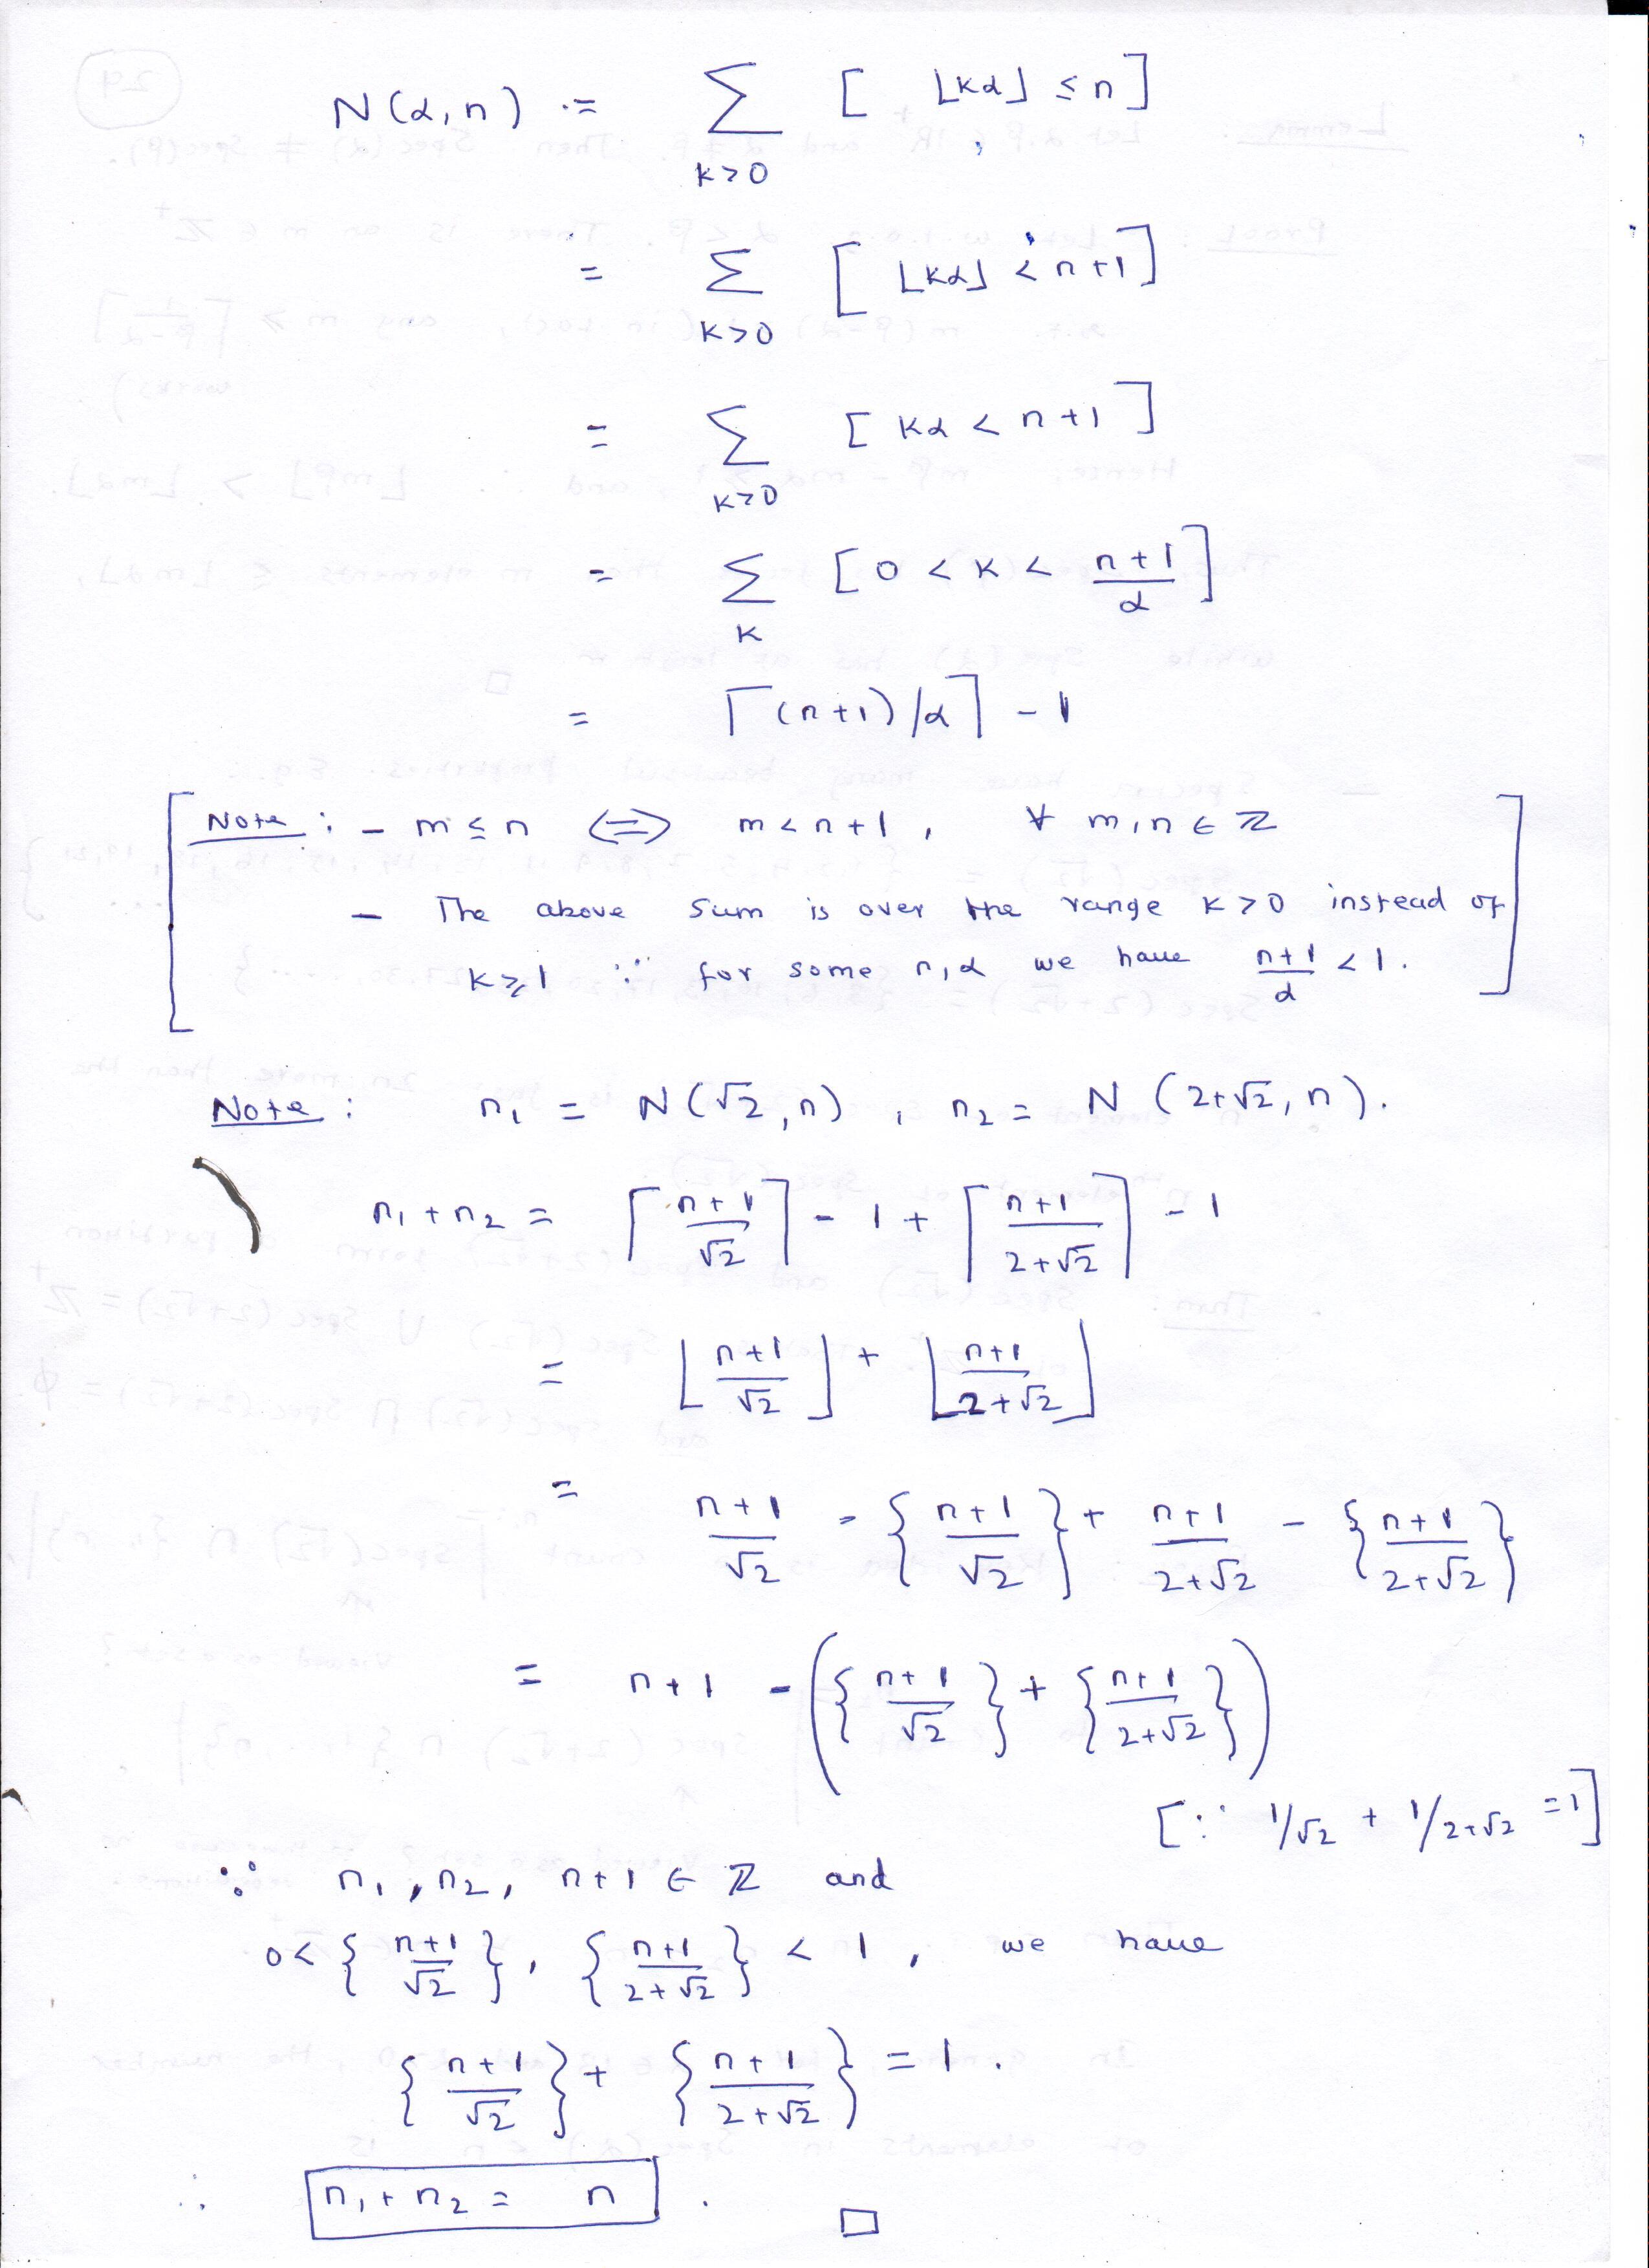 N(α,n) := ∑_{k>0} [ ⌊kα⌋ ≤ n ]
= ∑_{k>0} [ ⌊kα⌋ < n+1 ]
= ∑_{k>0} [ kα < n+1 ]
= ∑_k [ 0 < k < (n+1)/α ]
= ⌈(n+1)/α⌉ - 1
Note : - m ≤ n ⟺ m < n+1 , ∀ m,n ∈ ℤ
- The above sum is over the range k>0 instead of
k≥1 ∵ for some n,α we have (n+1)/α < 1.
Note : n₁ = N(√2,n) , n₂ = N(2+√2,n).
n₁+n₂ = ⌈(n+1)/√2⌉ - 1 + ⌈(n+1)/(2+√2)⌉ - 1
= ⌊(n+1)/√2⌋ + ⌊(n+1)/(2+√2)⌋
= (n+1)/√2 - {(n+1)/√2} + (n+1)/(2+√2) - {(n+1)/(2+√2)}
= n+1 - ({(n+1)/√2} + {(n+1)/(2+√2)})
[∵ 1/√2 + 1/2+√2 = 1]
∵ n₁, n₂, n+1 ∈ ℤ and
0 < {(n+1)/√2}, {(n+1)/(2+√2)} < 1, we have
{(n+1)/√2} + {(n+1)/(2+√2)} = 1.
∴ n₁+n₂ = n . □